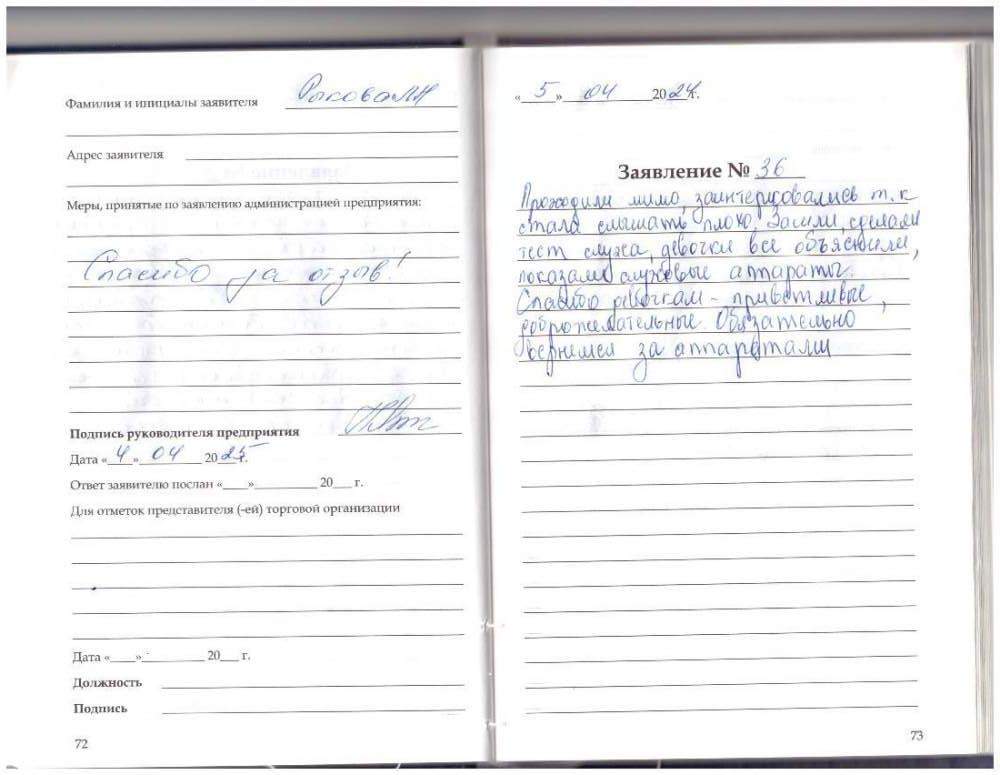 Фамилия и инициалы заявителя Рыкова Л Н
Адрес заявителя
Меры, принятые по заявлению администрацией предприятия:
Спасибо за отзыв!
Подпись руководителя предприятия
Дата «4» 04 2025 г.
Ответ заявителю послан «____»__________ 20___ г.
Для отметок представителя (-ей) торговой организации
Дата «____»__________ 20___ г.
Должность
Подпись
72
«5» 04 2024 г.
Заявление № 36
Проходили мимо, заинтерисовались т.к
стала слышать плохо. Зашли, сделали
тест слуха, девочки все объяснили,
показали слуховые аппараты.
Спасибо девочкам - приветливые,
доброжелательные. Обязательно
вернемся за аппаратами
73